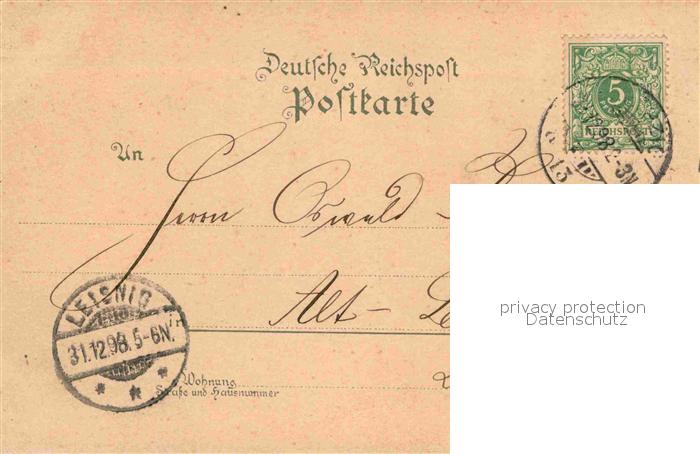 Deutsche Reichspost
Postkarte
5
REICHSPOST
98 2-3N
13
An
Herrn Oswald
Alt-
LEISNIG
31.12.98. 5-6N.
Wohnung
Straße und Hausnummer
privacy protection
Datenschutz